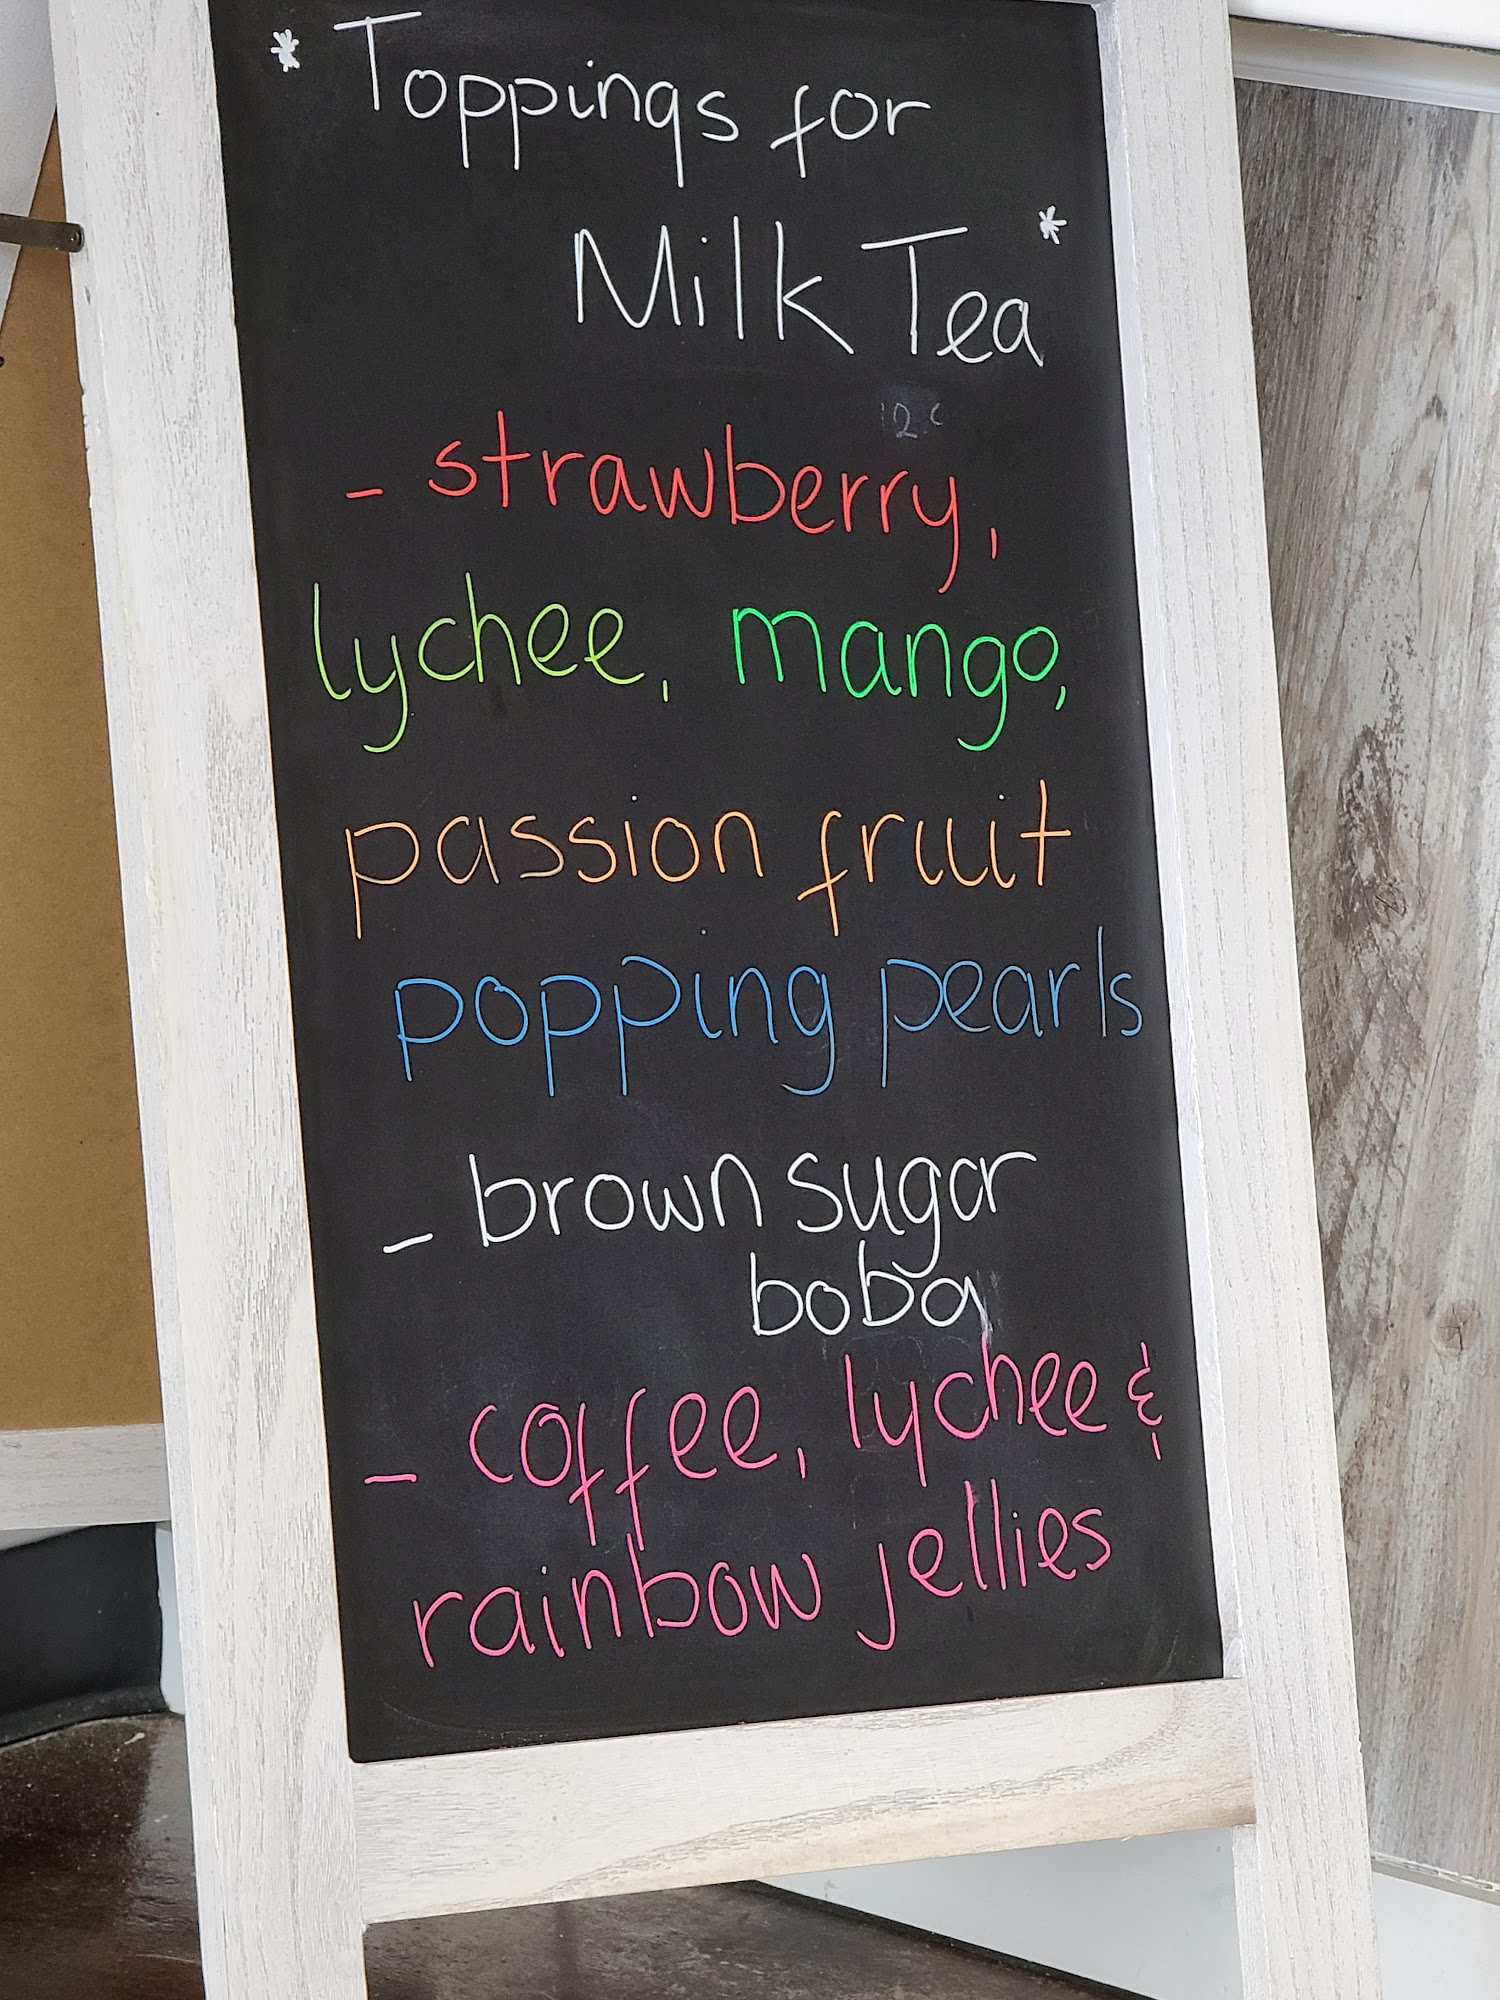 * Toppings for
Milk Tea *
- strawberry,
lychee, mango,
passion fruit
popping pearls
- brown sugar
boba
- coffee, lychee &
rainbow jellies